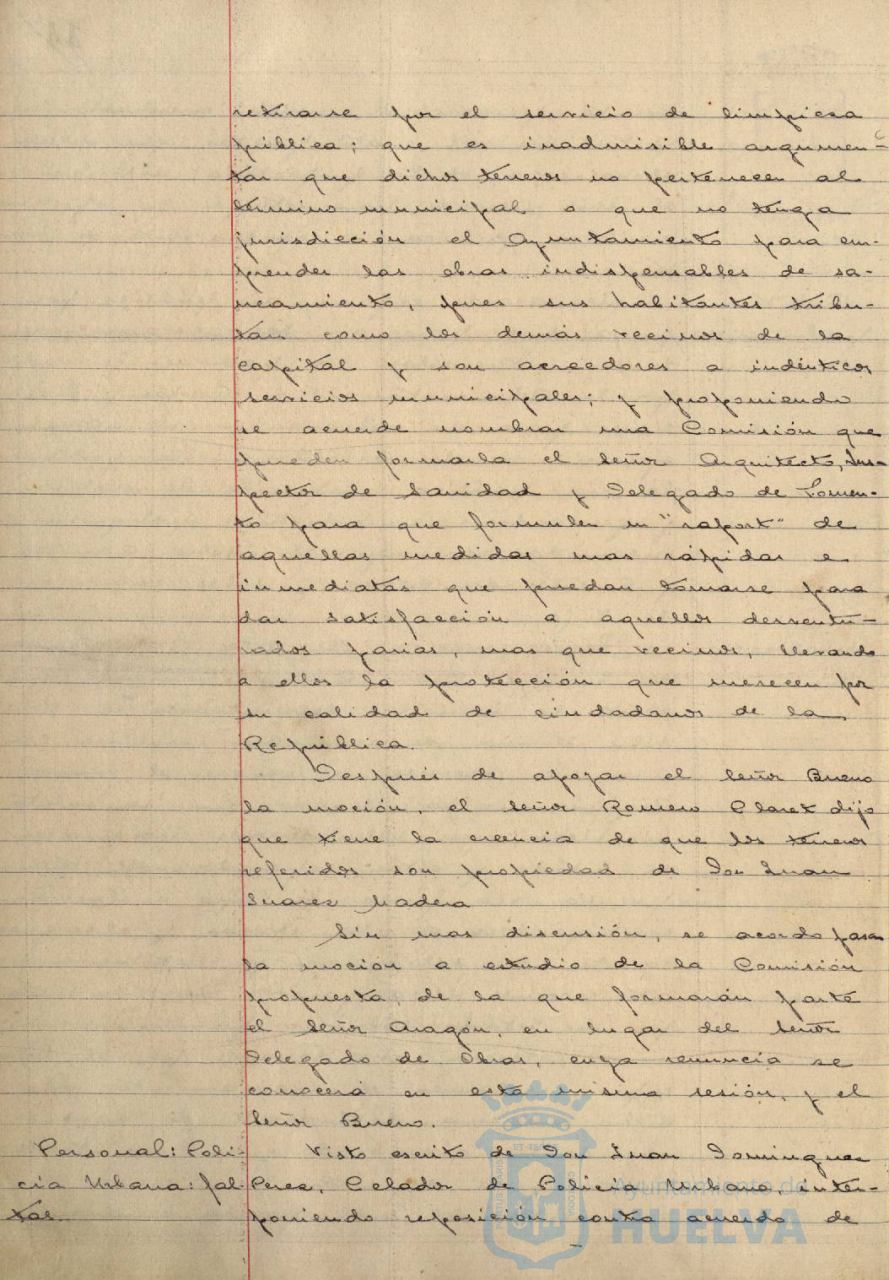 retirarse por el servicio de limpieza
pública; que es inadmisible argumen-
tar que dichos terrenos no pertenecen al
término municipal o que no tenga
jurisdicción el Ayuntamiento para em-
prender las obras indispensables de sa-
neamiento, pues sus habitantes tribu-
tan como los demás vecinos de la
capital y son acreedores a indénticos
servicios municipales; y proponiendo
se acuerde nombrar una Comisión que
pueden formarla el señor Arquitecto, Ins-
pector de Sanidad y Delegado de Fomen-
to para que formulen un "raport" de
aquellas medidas mas rápidas e
inmediatas que puedan tomarse para
dar satisfacción a aquellos desventu-
rados parias, mas que vecinos, llevando
a ellos la protección que merecen por
su calidad de ciudadanos de la
República.
Después de apoyar el señor Bueno
la moción, el señor Romero Claret dijo
que tiene la creencia de que los terrenos
referidos son propiedad de Don Juan
Suarez Madera
Sin mas discusión, se acordo pasar
la moción a estudio de la Comisión
propuesta, de la que formarán parte
el señor Aragón, en lugar del señor
Delegado de Obras, cuya renuncia se
conocerá en esta misma sesión, y el
señor Bueno.
Personal: Poli-
cia Urbana: fal-
tas.
Visto escrito de Don Juan Dominguez
Perez, Celador de Policia Urbana, inter-
poniendo reposición contra acuerdo de
Ayuntamiento de
HUELVA